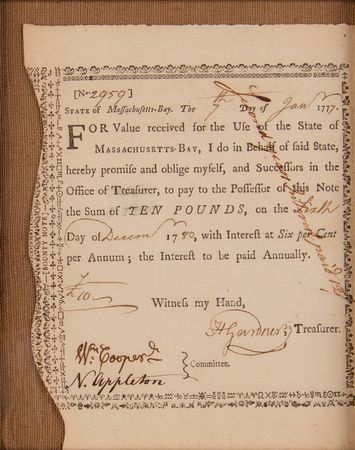 [No 2959]
STATE of Massachusetts-Bay. The 7th Day of Janry 1777.
FOR Value received for the Use of the State of
MASSACHUSETTS-BAY, I do in Behalf of said State,
hereby promise and oblige myself, and Successors in the
Office of Treasurer, to pay to the Possessor of this Note
the Sum of TEN POUNDS, on the
Day of Decemr 1780, with Interest at Six per Cent
per Annum; the Interest to be paid Annually.
£10
Witness my Hand,
HGardner Treasurer.
Wm Cooper
N. Appleton
} Committee.
BOUNTY NOTE